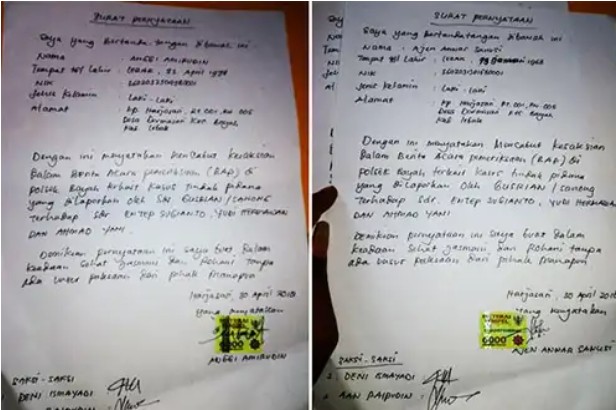 SURAT PERNYATAAN
Saya yang bertanda tangan dibawah ini
Nama : ANGGI AMIRUDIN
Tempat tgl Lahir : Lebak, April
NIK :
Jenis Kelamin : Laki - Laki
Alamat : Kp Harjasari, RT.001, RW.006
Desa Kec. Bayah
Kab Lebak
Dengan ini menyatakan Mencabut Kesaksian
Dalam Berita Acara pemeriksaan (BAP) di
polsek Bayah terkait Kasus tindak pidana
yang dilaporkan oleh Sdr BUSRIAN / SANONG
Terhadap Sdr. ENTEP SUGIANTO, YUDI HERMAWAN
DAN AHMAD YANI.
Demikian pernyataan ini saya buat dalam
keadaan sehat jasmani dan Rohani tanpa
ada unsur paksaan dari pihak manapun
Harjasari, 30 April 2018
yang menyatakan
6000
ANGGI AMIRUDIN
SAKSI - SAKSI
DENI ISMAYADI
SURAT PERNYATAAN
Saya yang bertandatangan dibawah ini
Nama : Ajen Anwar Sanusi
Tempat tgl Lahir : Lebak,
NIK :
Jenis Kelamin : Laki - Laki
Alamat : Kp Harjasari RT.001, RW.006
Desa Kec. Bayah
Kab Lebak
Dengan ini menyatakan Mencabut Kesaksian
Dalam Berita Acara pemeriksaan (BAP) di
Polsek Bayah terkait kasus tindak pidana
yang dilaporkan oleh BUSRIAN / Sanong
Terhadap Sdr. ENTEP SUGIANTO, YUDI
DAN AHMAD YANI
Demikian pernyataan ini saya buat dalam
keadaan sehat jasmani dan Rohani tanpa
ada unsur paksaan dari pihak manapun
Harjasari, 30 April
yang menyatakan
6000
AJEN ANWAR SANUSI
SAKSI - SAKSI
DENI ISMAYADI
2. AAN